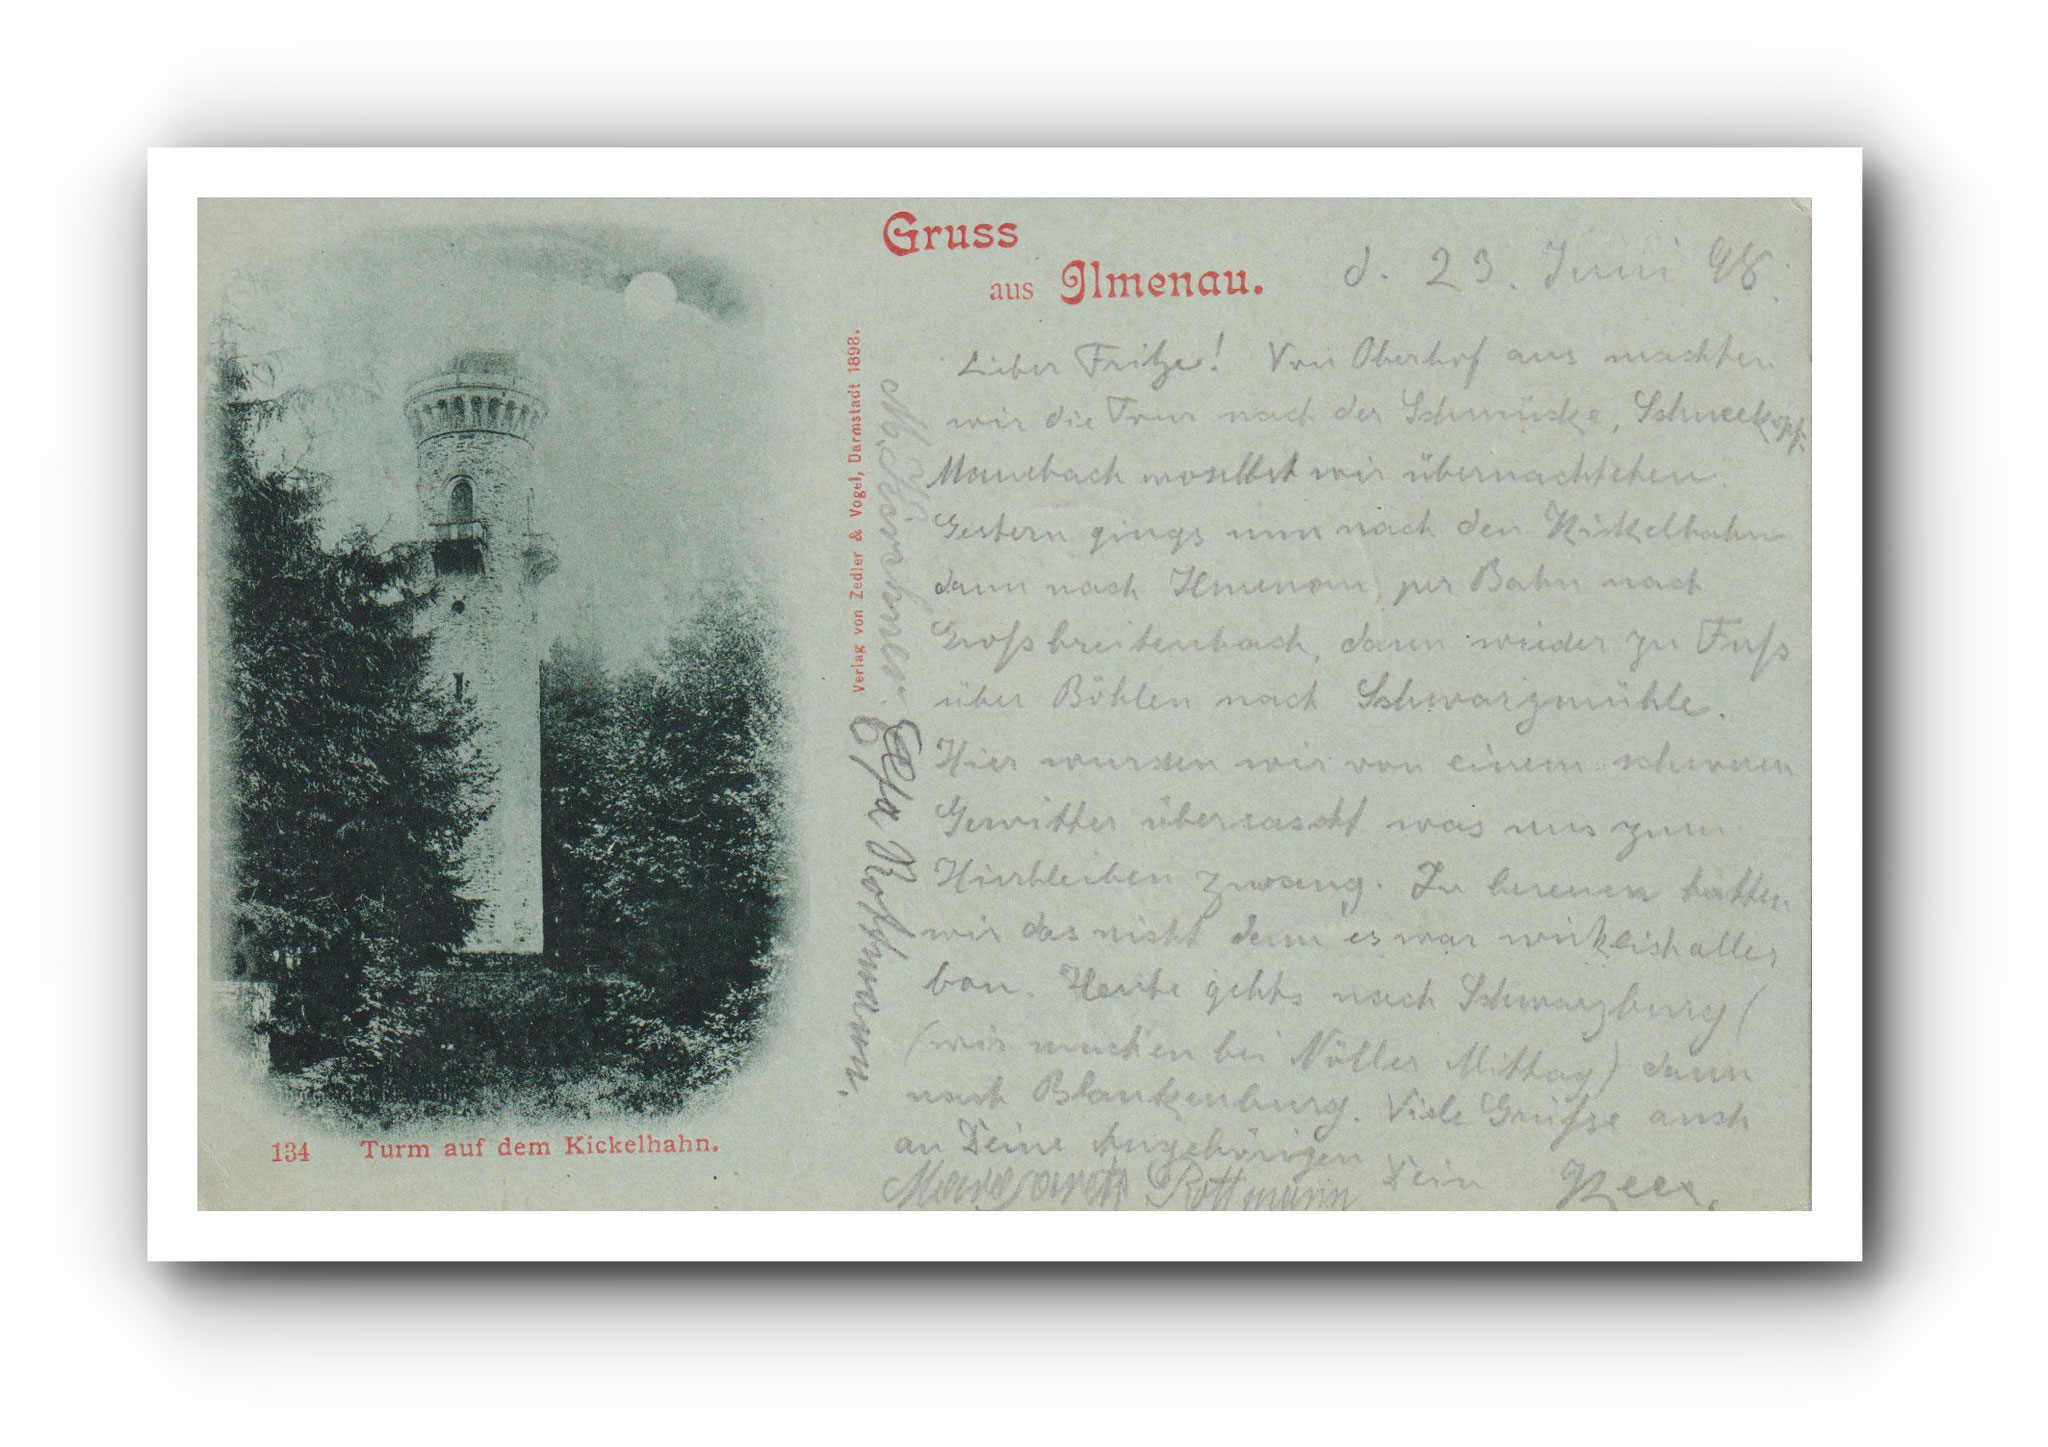 Gruss
aus Ilmenau.
d. 23. Juni 98.
Lieber Fritze! Von Oberhof aus machten
wir die Tour nach der Schmücke, Schneekopf
Manebach woselbst wir übernachteten.
Gestern gings nun nach den Kickelhahn
dann nach Ilmenau, per Bahn nach
Großbreitenbach, dann wieder zu Fuß
über Böhlen nach Schwarzmühle.
Hier wurden wir von einem schweren
Gewitter überrascht was uns zum
Hierbleiben zwang. Zu bereuen hatten
wir das nicht denn es war wirklich
Heute gehts nach Schwarzburg (
(wir machen bei Mittag) dann
nach Blankenburg. Viele Grüße auch
an Deine Angehörigen Dein
Margareth Rottmann
Verlag von Zedler & Vogel, Darmstadt 1898.
Rottmann.
134 Turm auf dem Kickelhahn.